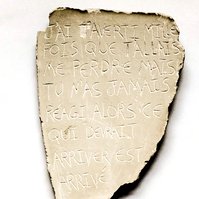 J'AI T'AVERTI MILLE
FOIS QUE T'ALLAIS
ME PERDRE MAIS
TU N'AS JAMAIS
REAGI ALORS CE
QUI DEVRAIT
ARRIVER EST
ARRIVÉ